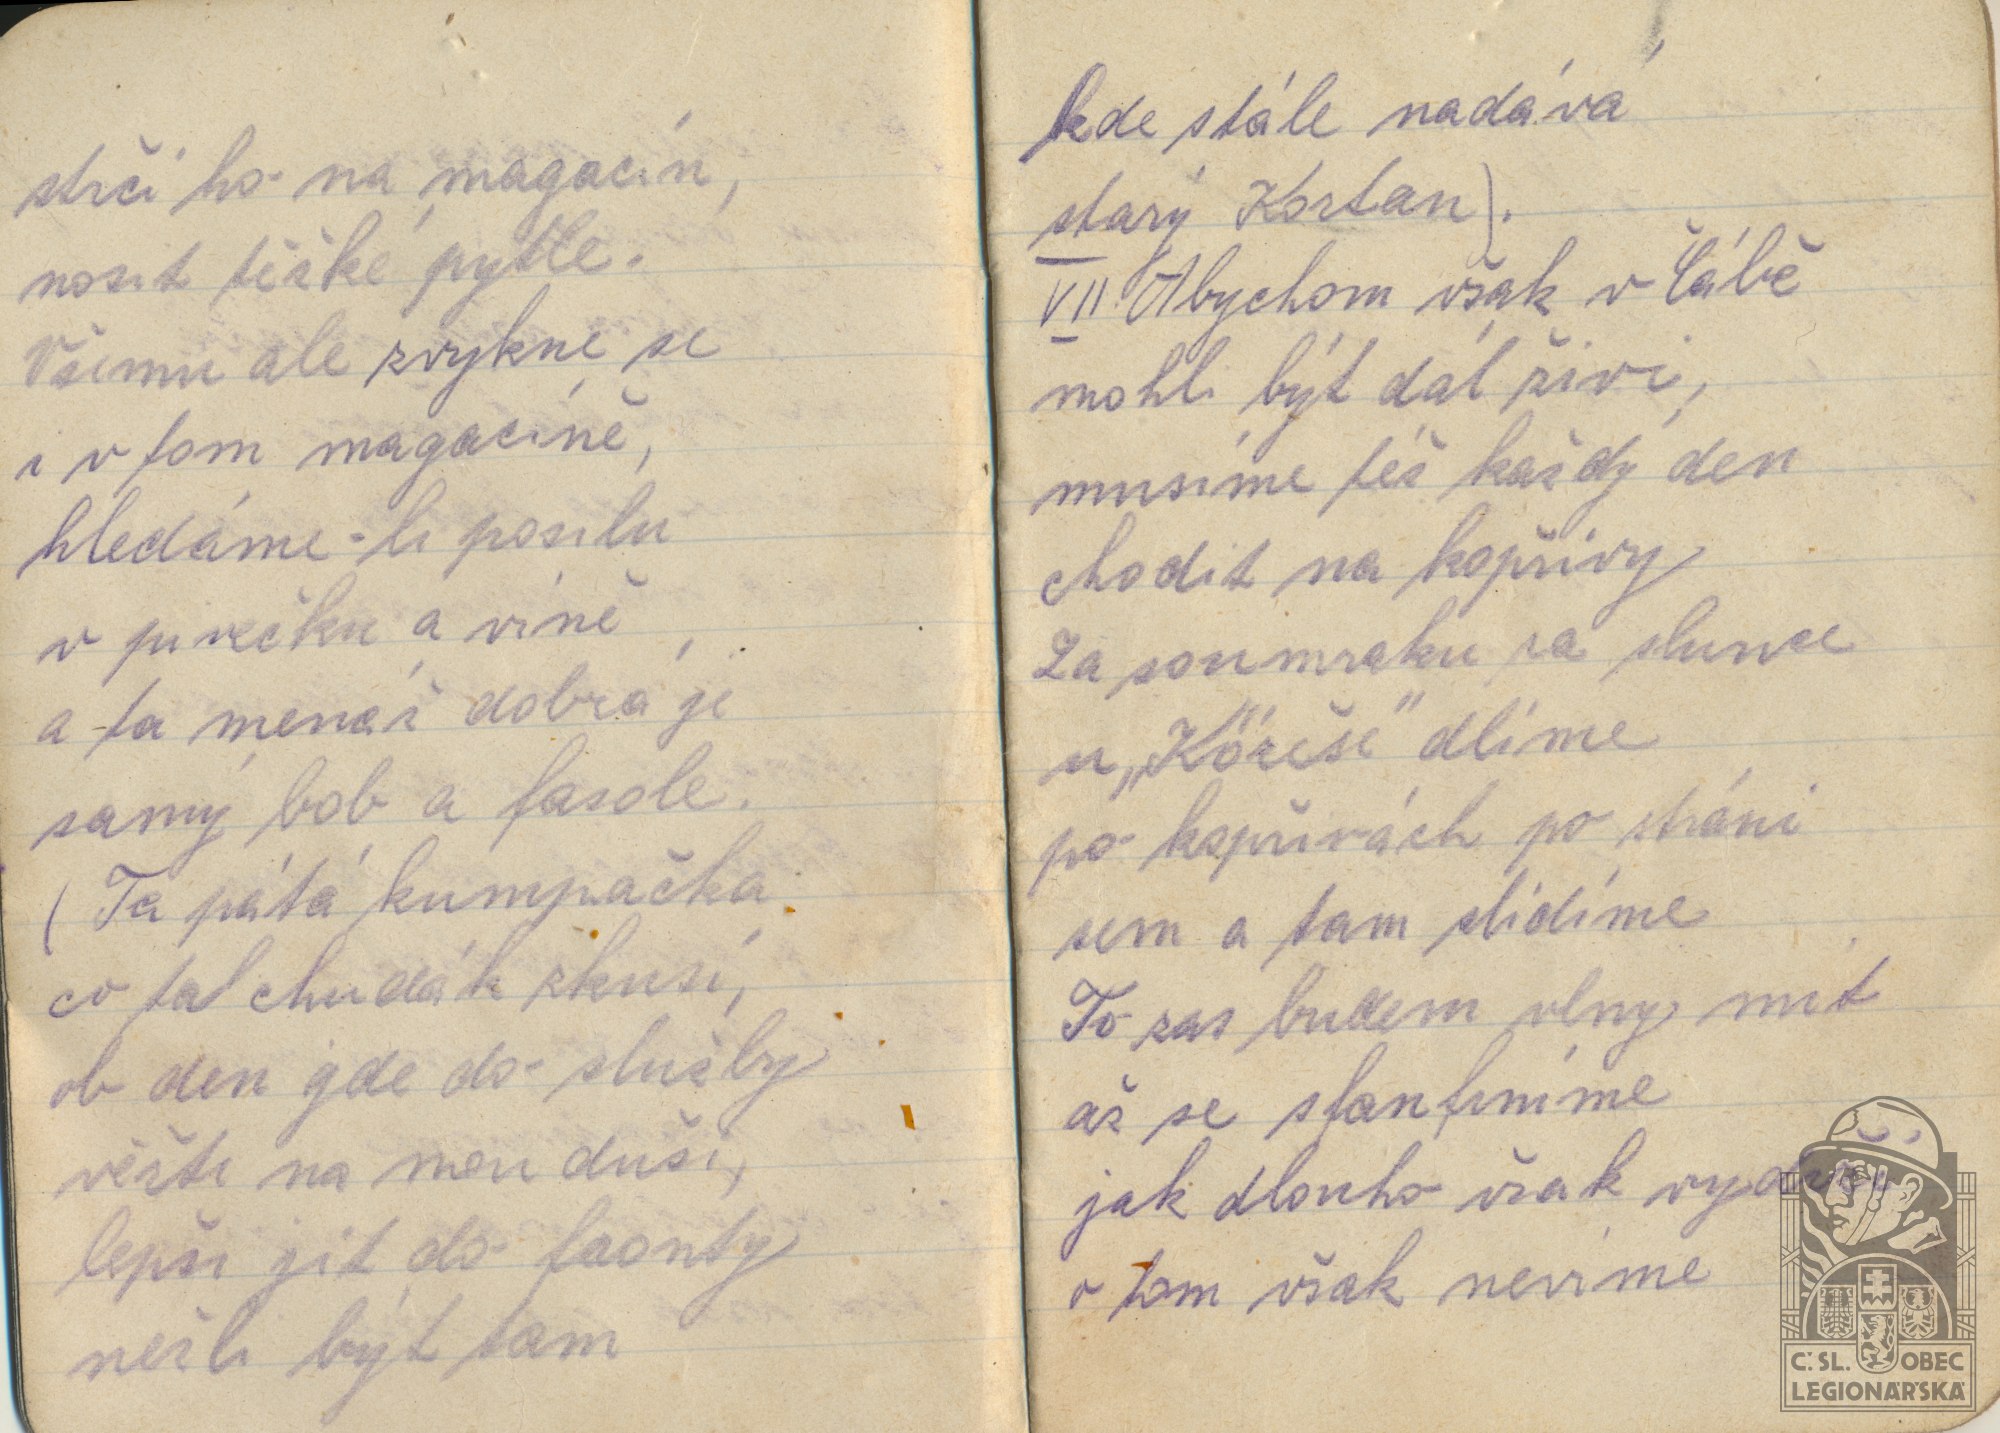 strčí ho na magacín,
nosit těžké pytle.
Všemu ale zvykne se
i v tom magacíně,
hledáme-li posilu
v pivečku a víně,
a ta menáž dobrá je
samý bob a fasole.
(Ta pátá kumpačka
co tal chudák zkusí,
ob den jde do služby
věžte na mou duši,
lepší jít do faonty
nežli být tam
kde stále nadává
starý Kortan).
VII Abychom však v Čábě
mohli být dál živi,
musíme též každý den
chodit na kopřivy
Za soumraku za slunce
u „Köreše" dlíme
po kopřivách po stráni
sem a tam slídíme
To zas budem vlny mít
až se sfantíníme
jak dlouho však vydrží
v tom však nevíme
Č. SL. OBEC
LEGIONÁŘSKÁ